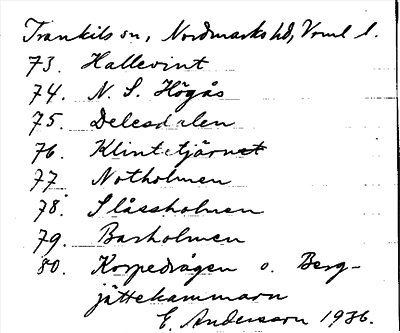 Trankils sn, Nordmarks hd, Vrml l.
73. Hallevint
74. N. S. Högås
75. Delesdalen
76. Klintetjärnet
77 Notholmen
78. Slåssholmen
79. Basholmen
80. Korpedrågen o. Berg-
jättekammarn
E. Andersson 1936.